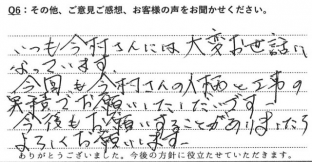 Q6：その他、ご意見ご感想、お客様の声をお聞かせください。
いつも今村さんには大変お世話に
なっています。
今回も今村さんの人柄と工事の
実績でお願いしたいです
今後もお願いすることがありましたら
よろしくお願いします。
ありがとうございました。今後の方針に役立たせていただきます。